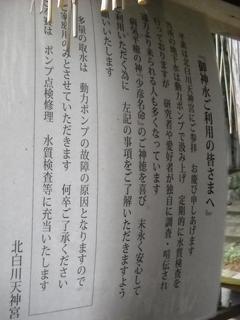 『御神水ご利用の皆さまへ』
北白川天神宮にご参拝 お慶び申しあげます
地下水は動力ポンプで汲み上げ 定期的に水質検査を
行っておりますが 研究者や愛好者が独自に調査・喧伝され
求められる人も多くなっています
少彦名命のご神徳を喜び 末永く安心して
ご利用いただく為に 左記の事項をご了解いただきますよう
願いいたします
多量の取水は 動力ポンプの故障の原因となりますので
のみとさせていただきます 何卒ご了承ください
は ポンプ点検修理 水質検査等に充当いたします
北白川天神宮